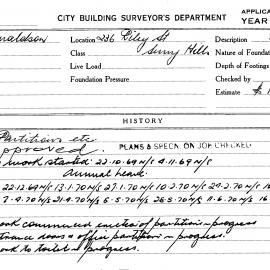 CITY BUILDING SURVEYOR'S DEPARTMENT
APPLICA
YEAR
Location 236 Riley St
Class Surry Hills
Nature of Founda
Live Load
Depth of Footings
Foundation Pressure
Checked by
Estimate $
HISTORY
Partitions etc.
approved. PLANS & SPECN. ON JOB CHECKED
work started 22-10-69 N/S 4-11-69 N/S
Annual leave
22-12-69 N/S 13-1-70 N/S 27-1-70 N/S 10-2-70 N/S 24-2-70 N/S
7-4-70 N/S 21-4-70 N/S 5-5-70 N/S 26-5-70 N/S 9-6-70 N/S 16
work commenced erection of partition in progress
entrance doors & office partition in progress.
work to toilet in progress.